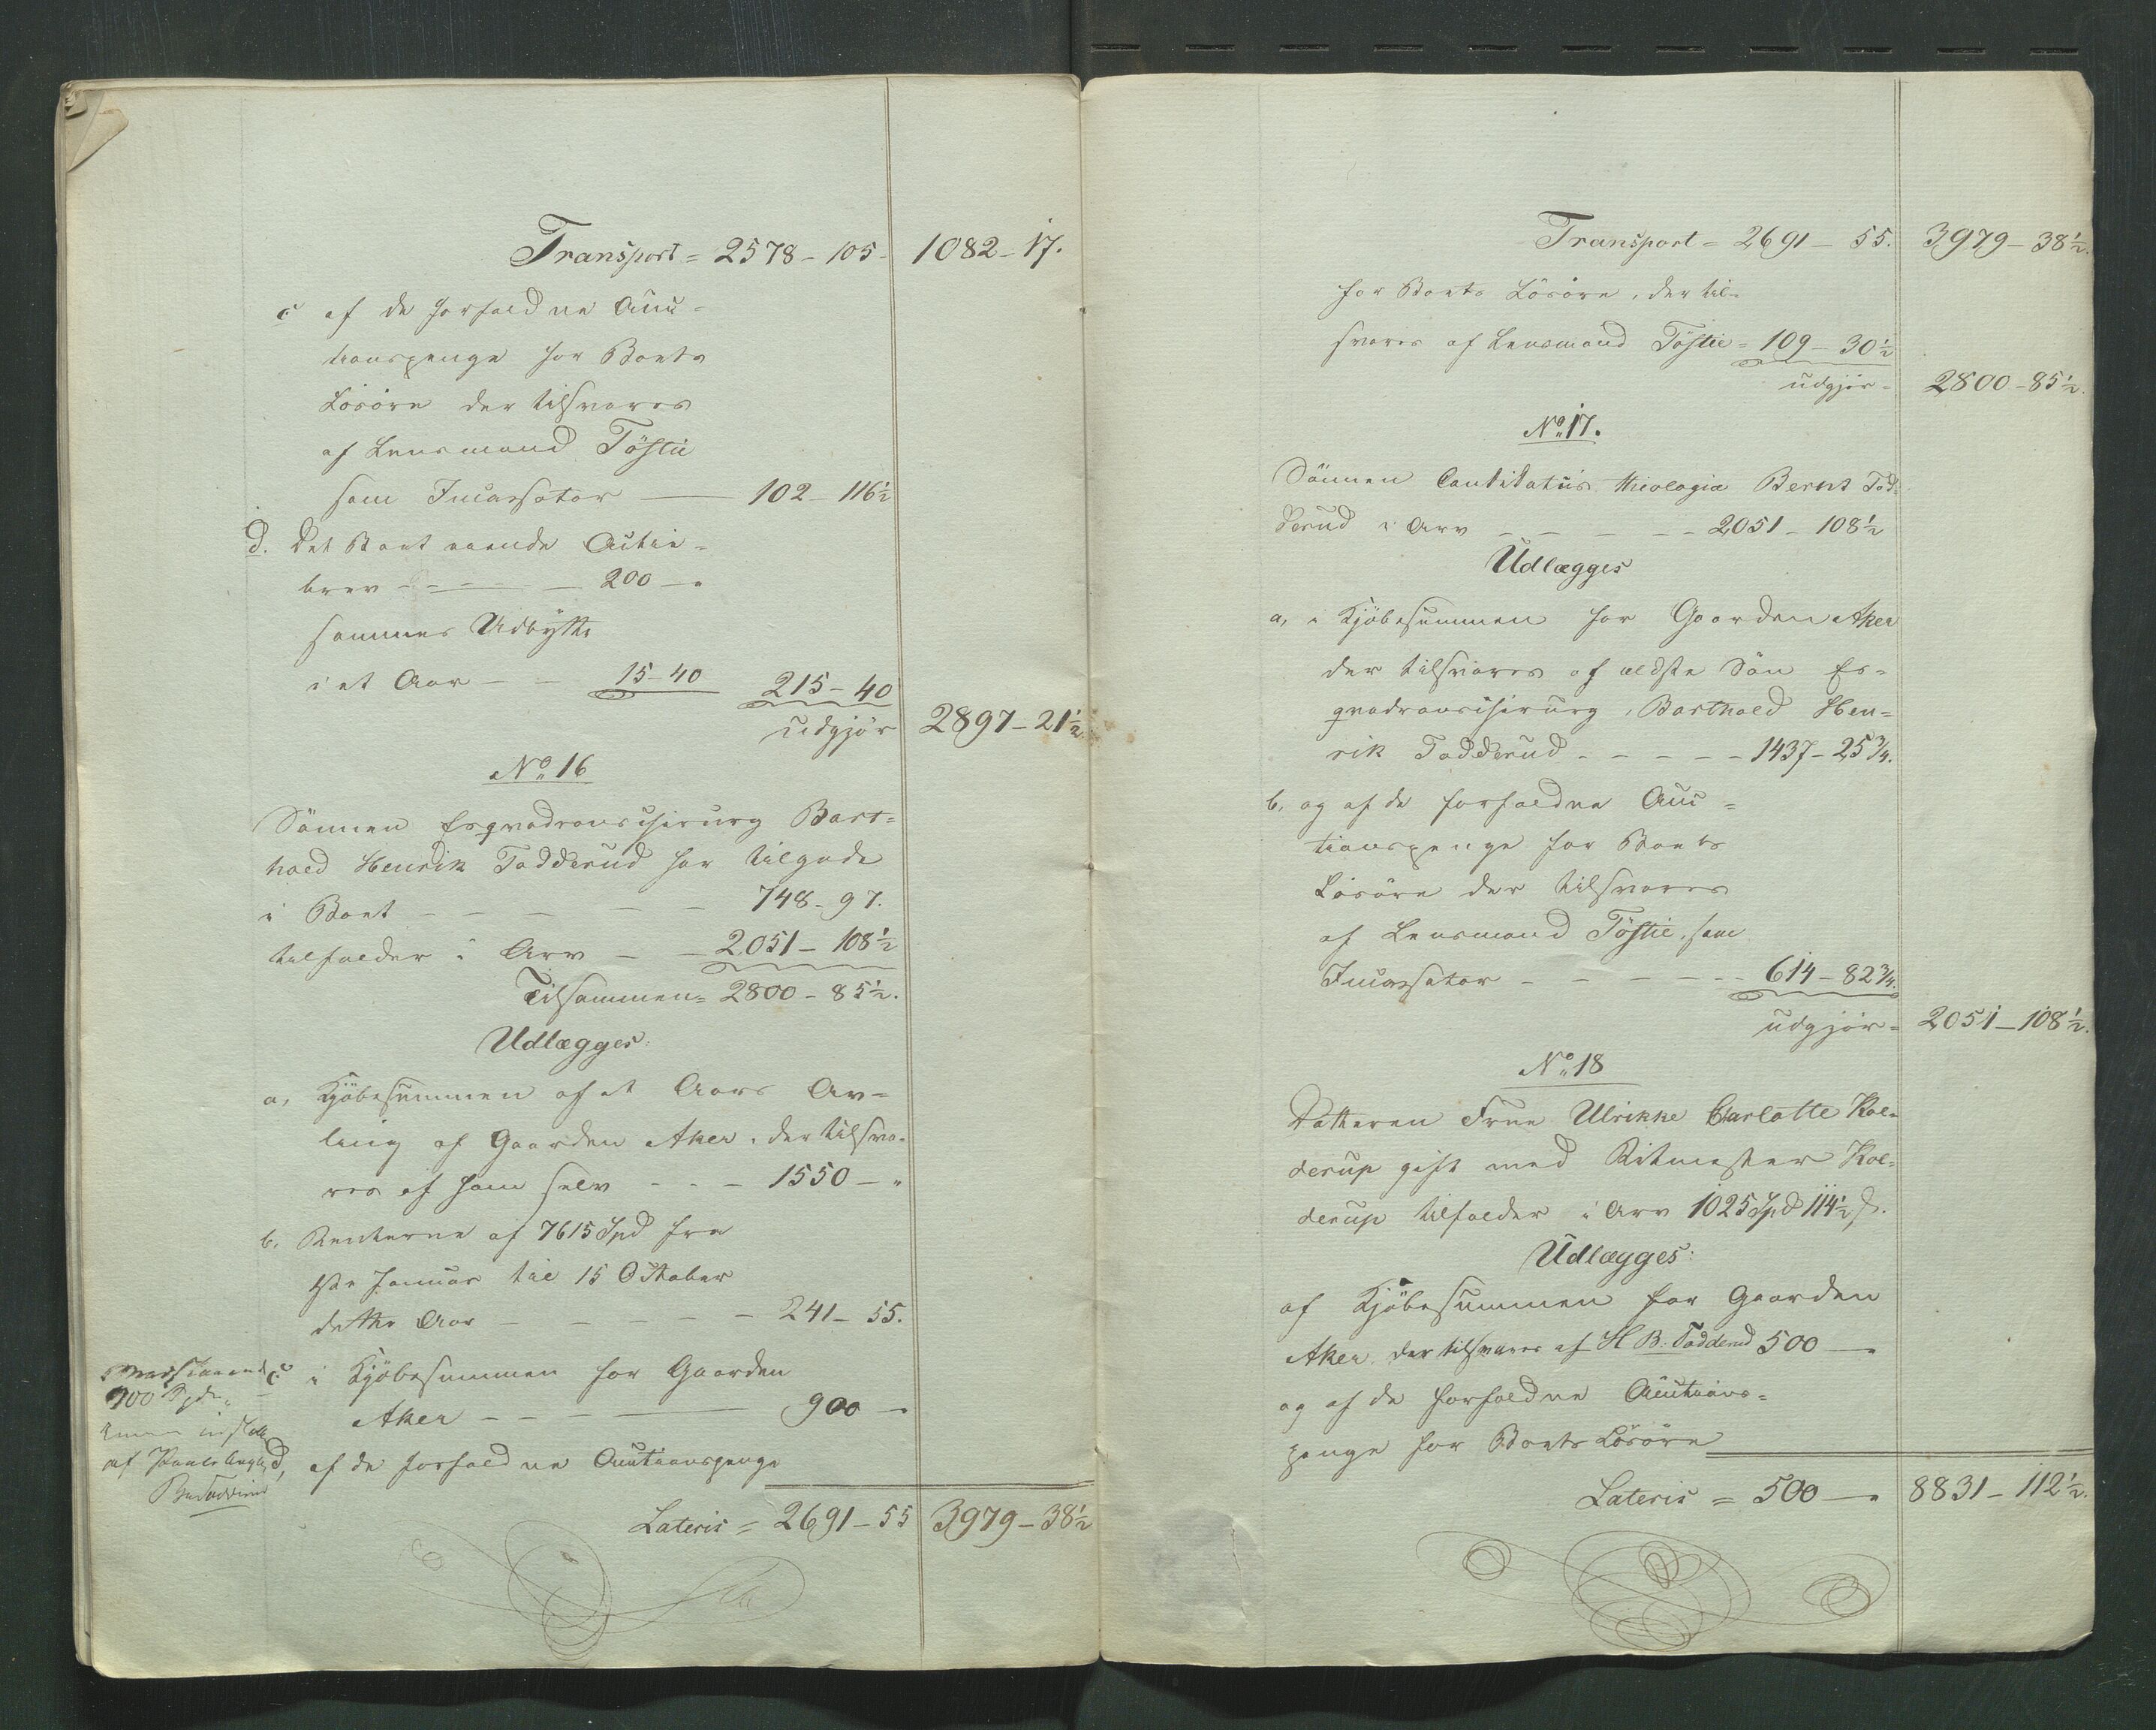 Transport = 2578 - 105 - 1082 - 17.
c af de forfaldne Auc-
tionspenge for Boets
Lösöre der tilsvares
af Lensmand Töstie
som Incassator — 102 - 116½
d. Det Boet eiende Actie-
brev - - - 200 - "
sammes Udbytte
i et Aar - - 15 - 40 215 - 40
udgjör 2897 - 21½
No. 16
Sönnen Esqvadronschirurg Bart-
hold Henrik Todderud har tilgode
i Boet - - - - - 748 - 97.
tilfalder i Arv - - 2051 - 108½
Tilsammen = 2800 - 85½.
Udlægges:
a, Kjöbesummen af et Aars Av-
ling af Gaarden Aker, der tilsva-
res af ham selv - - - 1550 - "
b. Renterne af 7615 Spd fra
1ste Januar til 15 October
dette Aar - - - - - 241 - 55.
c i Kjöbesummen for Gaarden
Aker - - - — 900 — "
d, af de forfaldne Auctionspenge
Lateris = 2691 - 55 3979 - 38½
900 Spdr.
af
Transport = 2691 - 55. 3979 - 38½.
for Boets Lösöre, der til-
svares af Lensmand Töstie = 109 - 30½
udgjör = 2800 - 85½.
No. 17.
Sönnen Candidatus theologiæ Bernt Tod-
derud i Arv - - - - - 2051 - 108½
Udlægges
a, i Kjöbesummen for Gaarden Aker
der tilsvares af ældste Sön Es-
qvadronschirurg, Barthold Hen-
rik Todderud - - - - - 1437 - 25¾.
b, og af de forfaldne Auc-
tionspenge for Boets
Lösöre der tilsvares
af Lensmand Töstie, som
Incassator - - - - - 614 - 82¾.
udgjör = 2051 - 108½.
No. 18
Datteren Frue Ulrikke Carlotte Kol-
derup gift med Ritmester Kol-
derup tilfalder i Arv 1025 Spd 114½ s.
Udlægges:
af Kjöbesummen for Gaarden
Aker, der tilsvares af H B. Todderud 500 — "
og af de forfaldne Auctions-
penge for Boets Lösöre
Lateris = 500 — " 8831 - 112½.